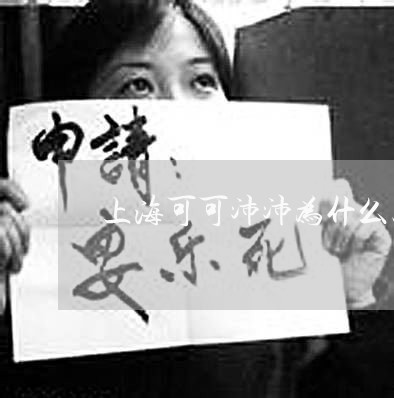 申請：
上海可可沛沛為什么
安乐死